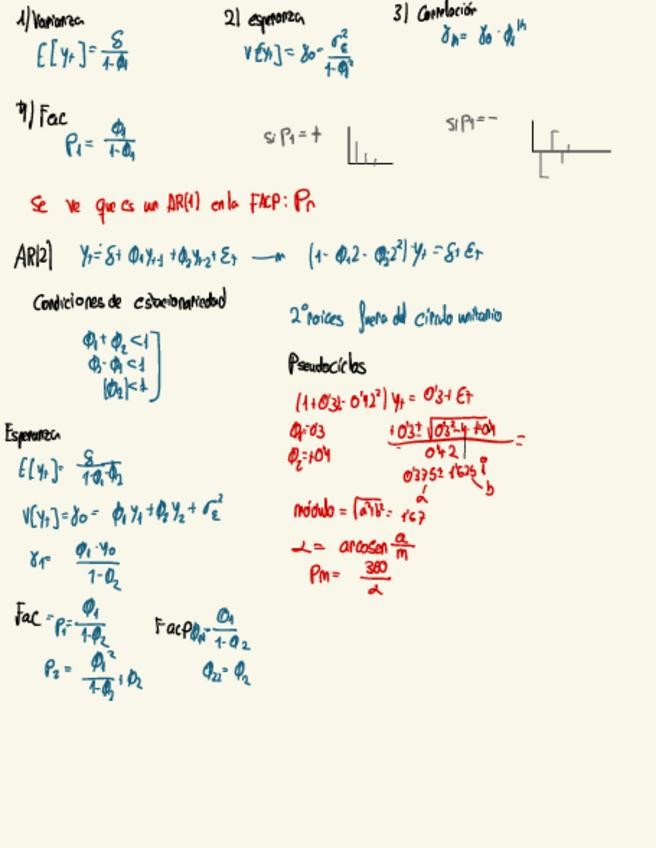 1) Varianza
E[yₜ] = δ/(1-ϕ₁)
2) esperanza
V[yₜ] = γ₀ = σ_ε²/(1-ϕ²)
3) Correlación
γₖ = γ₀ · ϕ₁ᴷ
4) Fac
ρ₁ = ϕ₁/(1-ϕ₁)
si ρ₁ = +
si ρ₁ = -
Se ve que es un AR(1) en la FACP:
AR[2] yₜ = δ + ϕ₁yₜ₋₁ + ϕ₂yₜ₋₂ + εₜ → (1 - ϕ₁2 - ϕ₂2²) yₜ = δ + εₜ
Condiciones de estacionariedad
ϕ₁ + ϕ₂ < 1
ϕ₂ - ϕ₁ < 1
|ϕ₂| < 1
2 raices fuera del círculo unitario
Pseudociclos
(1+0'32 - 0'42²) yₜ = 0'3 + εₜ
módulo = √(a²+b²) = 1'67
α = arcosen a/m
Pm = 360/α
Esperanza
E[yₜ] = δ/(1-ϕ₁-ϕ₂)
V[yₜ] = γ₀ = ϕ₁γ₁ + ϕ₂γ₂ + σ_ε²
γ₁ = ϕ₁·γ₀/(1-ϕ₂)
Fac = ρ₁ = ϕ₁/(1-ϕ₂)
ρ₂ = ϕ₁²/(1-ϕ₂) + ϕ₂
Facp ϕ₁₁ = ϕ₁/(1-ϕ₂)
ϕ₂₂ = ϕ₂